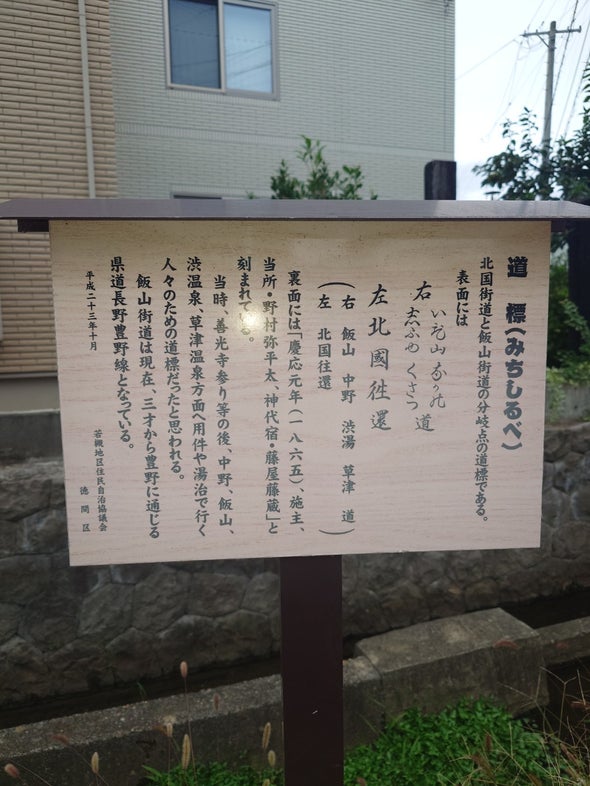 道標(みちしるべ)
北国街道と飯山街道の分岐点の道標である。
表面には
右 いひ山 なか乃 道
志ぶゆ くさつ
左北國徃還
(右 飯山 中野 渋湯 草津 道)
(左 北国往還)
裏面には「慶応元年(一八六五)、施主、
当所・野村弥平太、神代宿・藤屋藤蔵」と
刻まれている。
当時、善光寺参り等の後、中野、飯山、
渋温泉、草津温泉方面へ用件や湯治で行く
人々のための道標だったと思われる。
飯山街道は現在、三才から豊野に通じる
県道長野豊野線となっている。
平成二十三年十月
若槻地区住民自治協議会
徳間区